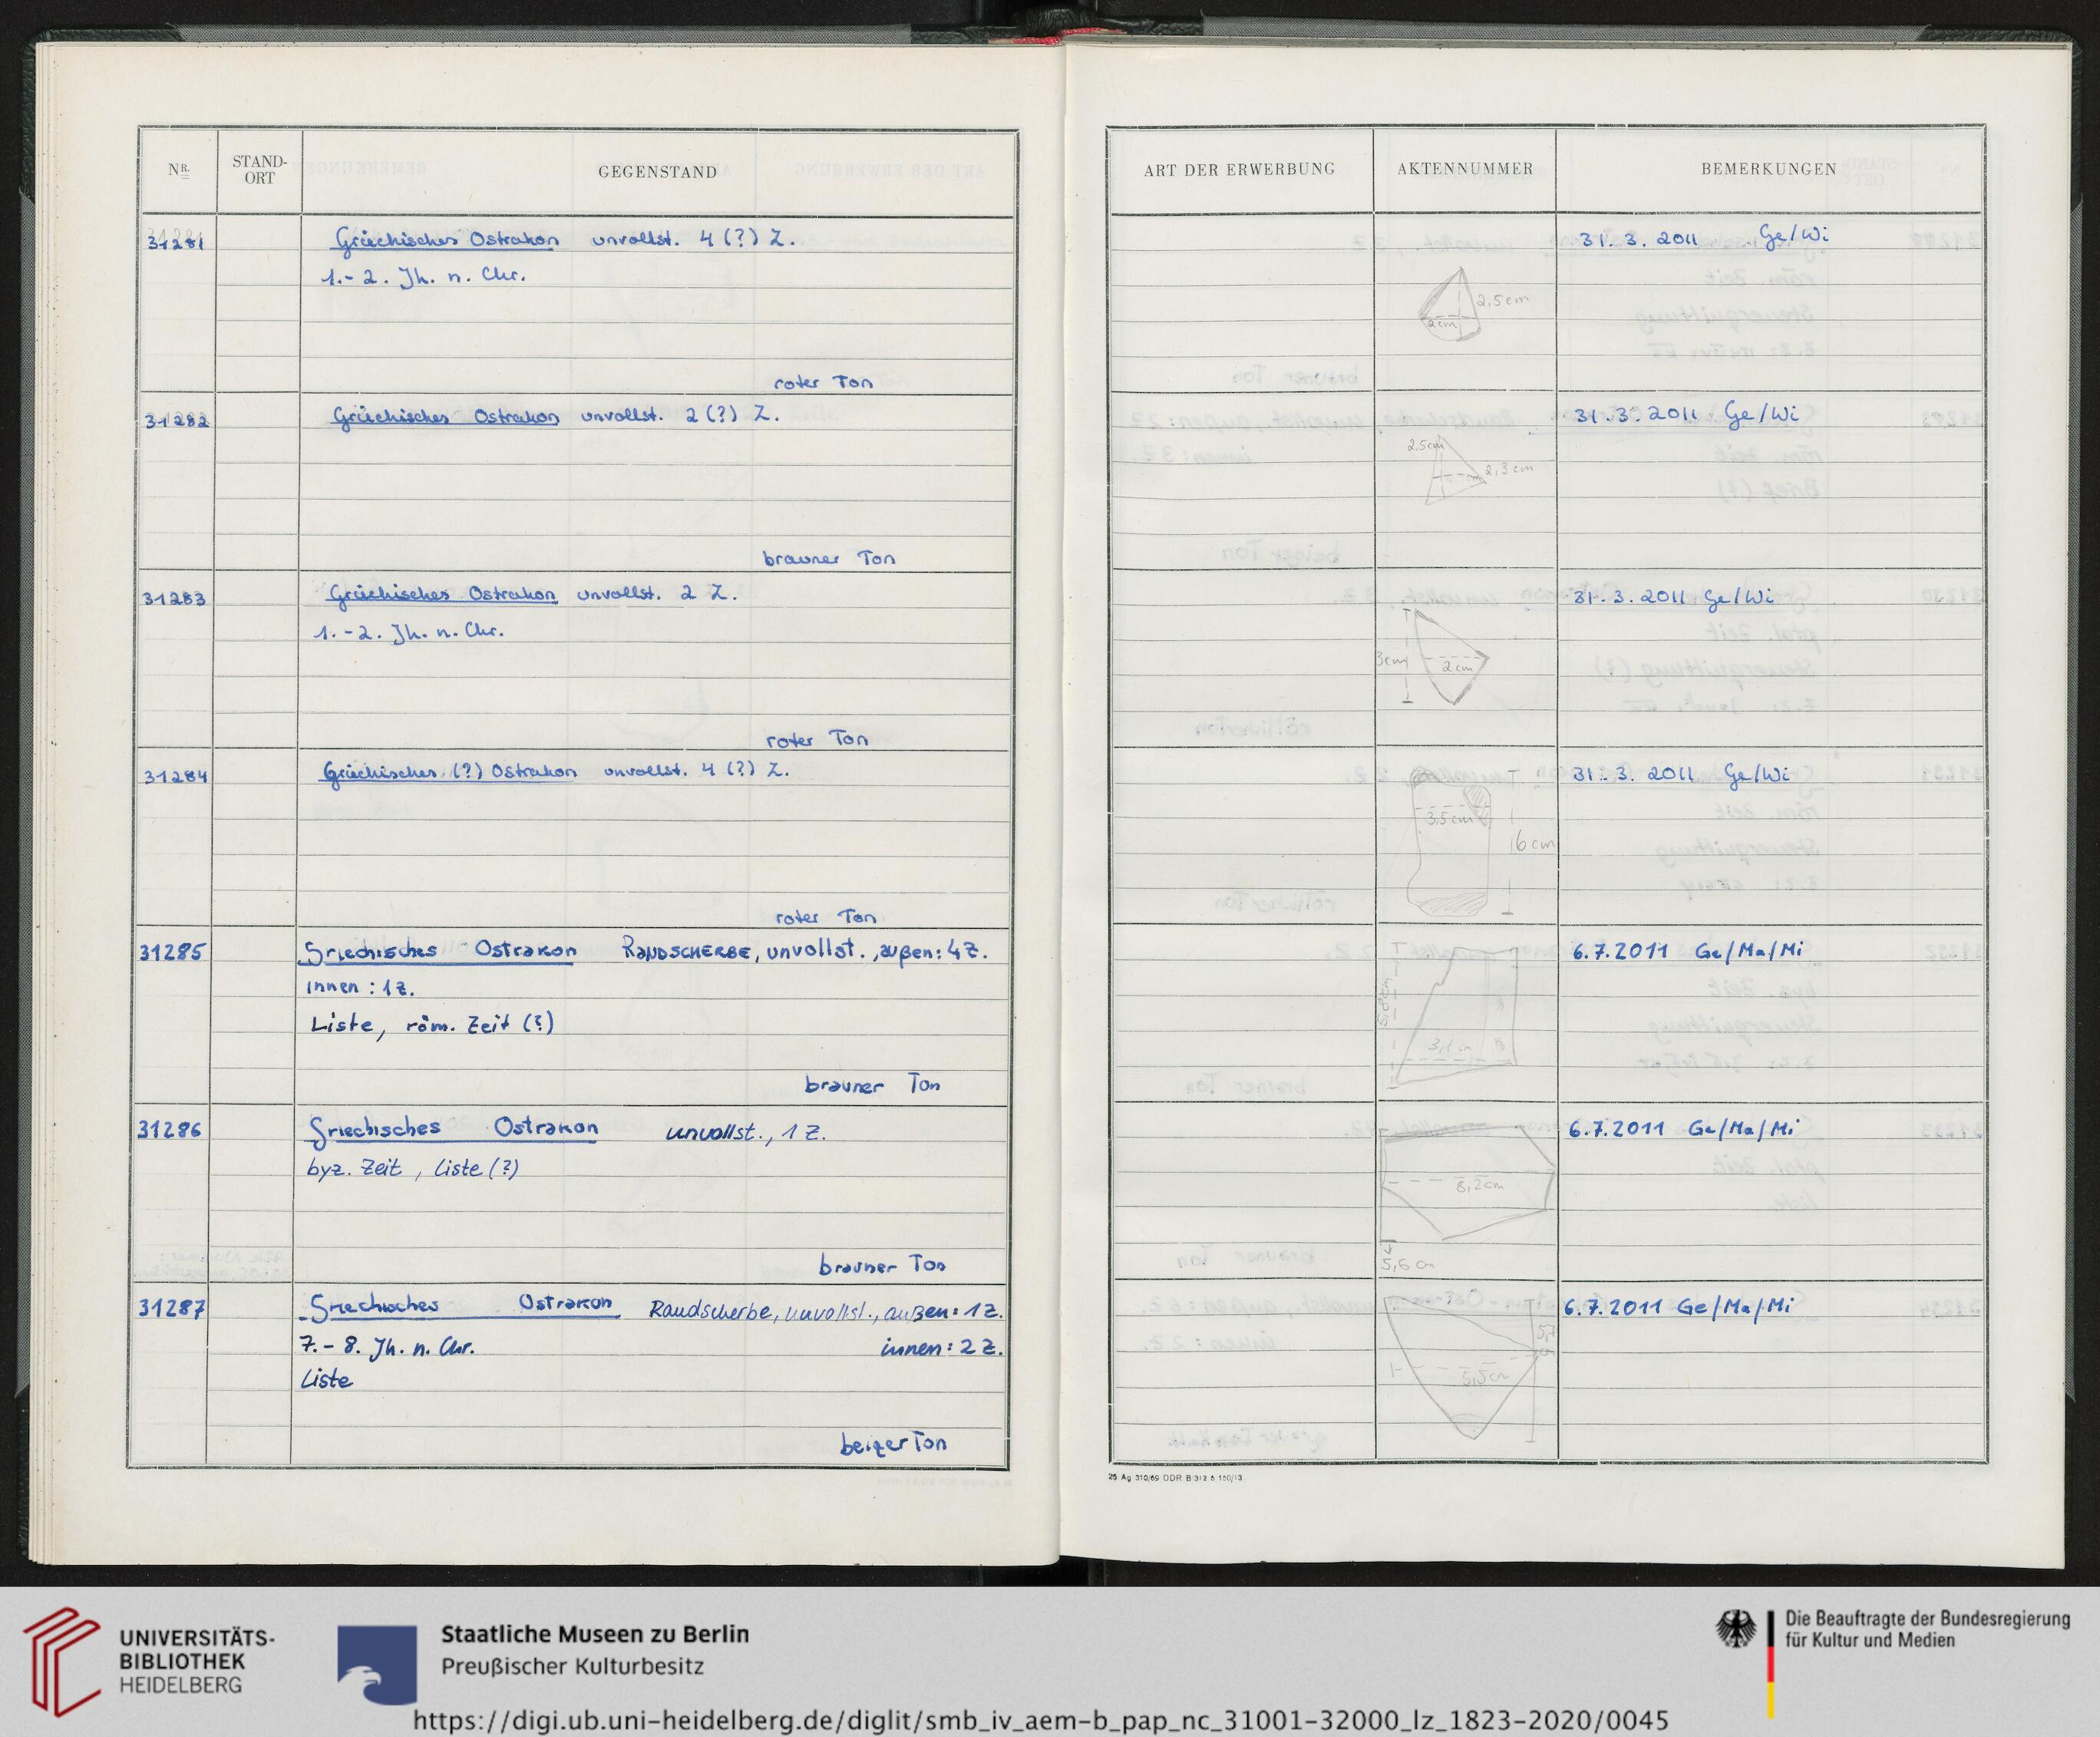 NR.
STAND-
ORT
GEGENSTAND
31281
Griechisches Ostrakon unvollst. 4 (?) Z.
1.-2. Jh. n. Chr.
roter Ton
31282
Griechisches Ostrakon unvollst. 2 (?) Z.
brauner Ton
31283
Griechisches Ostrakon unvollst. 2 Z.
1.-2. Jh. n. Chr.
roter Ton
31284
Griechisches (?) Ostrakon unvollst. 4 (?) Z.
roter Ton
31285
Griechisches Ostrakon RANDSCHERBE, unvollst., außen: 4 Z.
innen: 1 Z.
Liste, röm. Zeit (?)
brauner Ton
31286
Griechisches Ostrakon unvollst., 1 Z.
byz. Zeit, Liste (?)
brauner Ton
31287
Griechisches Ostrakon Randscherbe, unvollst., außen: 1 Z.
7.-8. Jh. n. Chr. innen: 2 Z.
Liste
beiger Ton
ART DER ERWERBUNG
AKTENNUMMER
BEMERKUNGEN
31. 3. 2011 Ge/Wi
2,5 cm
2 cm
31. 3. 2011 Ge/Wi
2,5 cm
2,3 cm
31. 3. 2011 Ge/Wi
3 cm
2 cm
31. 3. 2011 Ge/Wi
3,5 cm
6 cm
6.7.2011 Ge/Ma/Mi
3,1 cm
6.7.2011 Ge/Ma/Mi
8,2 cm
5,6 cm
6.7.2011 Ge/Ma/Mi
5,7
cm
5,5 cm
25 Ag 310/69 DDR
UNIVERSITÄTS-
BIBLIOTHEK
HEIDELBERG
Staatliche Museen zu Berlin
Preußischer Kulturbesitz
Die Beauftragte der Bundesregierung
für Kultur und Medien
https://digi.ub.uni-heidelberg.de/diglit/smb_iv_aem-b_pap_nc_31001-32000_lz_1823-2020/0045